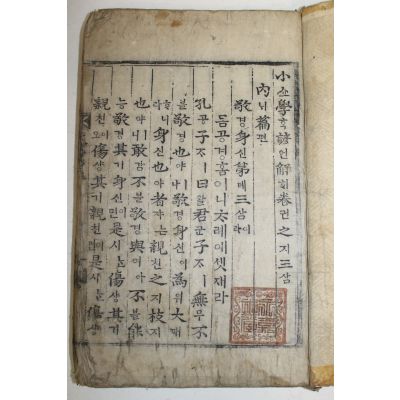 小쇼學ᄒᆞᆨ諺언解ᄒᆡ卷권之지三삼
內ᄂᆡ篇편
敬경身신第뎨三삼
몸공경홈이니ᄎᆞ례예셋재라
孔공子ᄌᆞㅣ曰왈君군子ᄌᆞㅣ無무不
블敬경也야ㅣ나敬경身신이爲위大대
ᄒᆞ니身신也야者쟈ᄂᆞᆫ親친之지枝지
也야ㅣ니敢감不블敬경與여아不블能
능敬경其기身신이면是시ᄂᆞᆫ傷샹其기
親친이오傷샹其기親친이면是시ᄂᆞᆫ傷샹